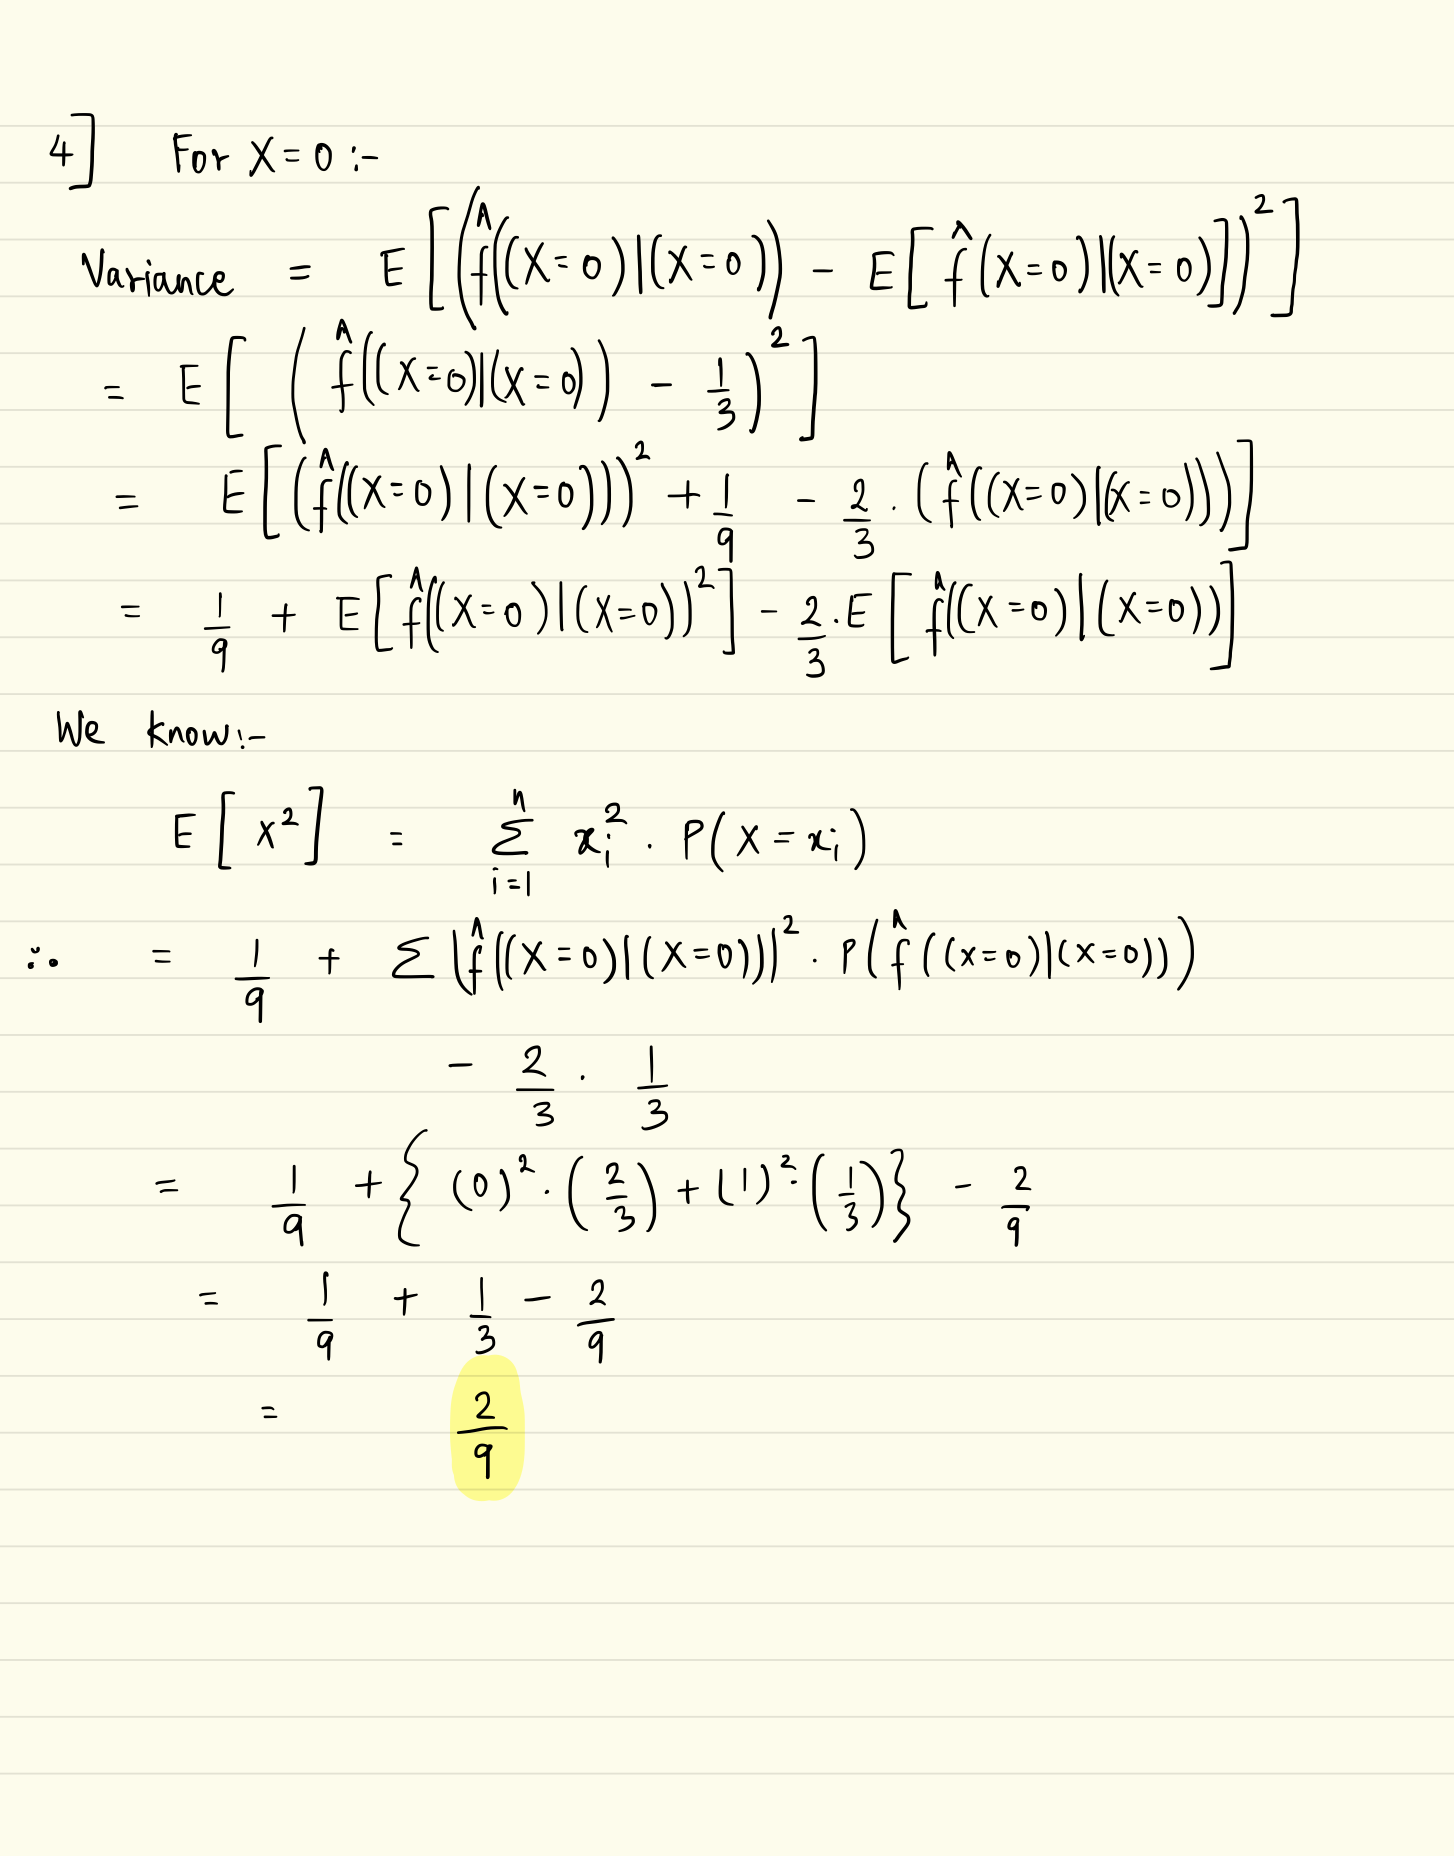 4] For X = 0 :-
Variance = E[(f̂((X=0)|(X=0)) - E[f̂(X=0)|(X=0)])²]
= E[(f̂((X=0)|(X=0)) - 1/3)²]
= E[(f̂((X=0)|(X=0)))² + 1/9 - 2/3 . (f̂((X=0)|(X=0)))]
= 1/9 + E[f̂((X=0)|(X=0))²] - 2/3 . E[f̂((X=0)|(X=0))]
We know:-
E[X²] = Σ_{i=1}^{n} x_i² . P(X = x_i)
∴ = 1/9 + Σ(f̂((X=0)|(X=0)))² . P(f̂((x=0)|(x=0)))
- 2/3 . 1/3
= 1/9 + {(0)² . (2/3) + (1)² . (1/3)} - 2/9
= 1/9 + 1/3 - 2/9
= 2/9